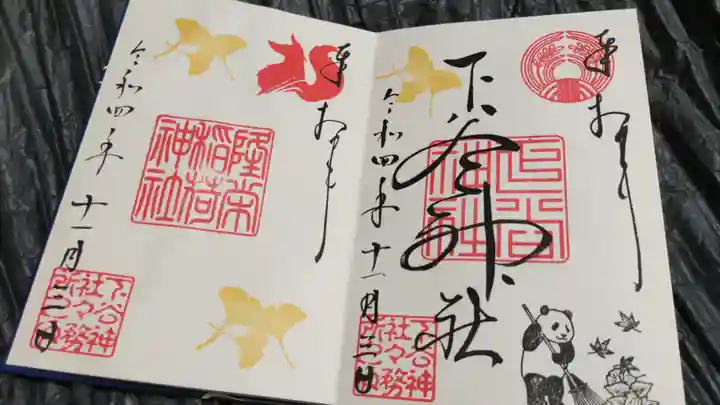 奉拝
下谷神社
下谷
神社
令和四年十一月三日
下谷神
社々務
所之印
奉拝
隆栄
稲荷
神社
令和四年十一月三日
下谷神
社々務
所之印